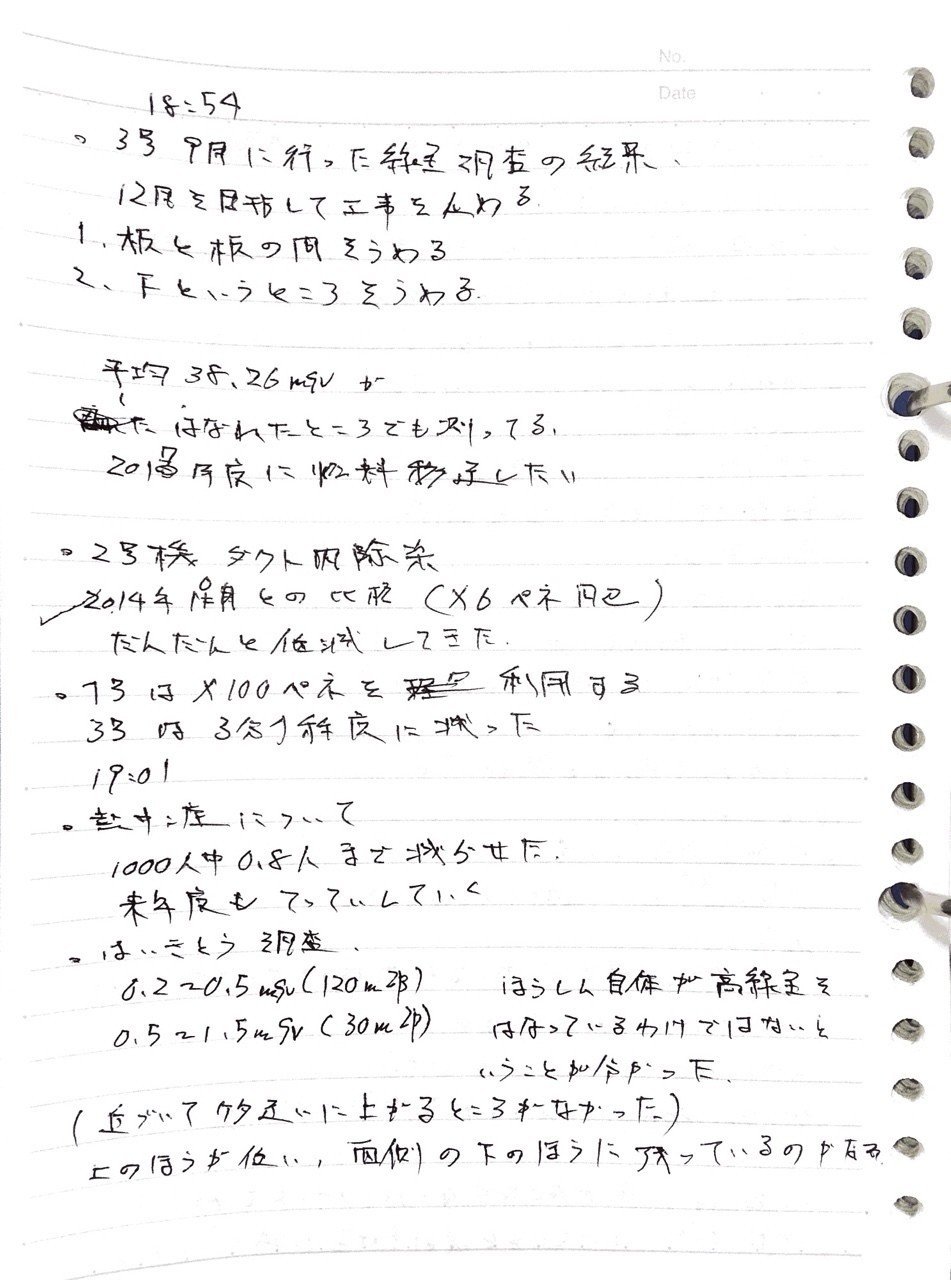 No.
Date
18:54
。3号 9月に行った線量調査の結果、
12月を目指して工事を止める
1、板と板の間をうめる
2、下というところをうめる。
平均 38.26mSv が
はなれたところでも測ってる。
2018年度に燃料移送したい
。2号機 ダクト内除染
2014年 との比較 (X6ペネ周辺)
だんだんと低減してきた。
。1号はX100ペネを 利用する
3号は3分1程度に減った
19:01
。熱中症について
1000人中0.8人まで減らせた。
来年度もてっていしていく
。はいきとう 調査、
0.2~0.5mSv(120m部) ほうしん自体が高線量を
0.5~1.5mSv(30m部) はなっているわけではないと
いうことが分かった。
(近づいて 桁違いに上がるところがなかった)
上のほうが低い、西側の下のほうに残っているのがある